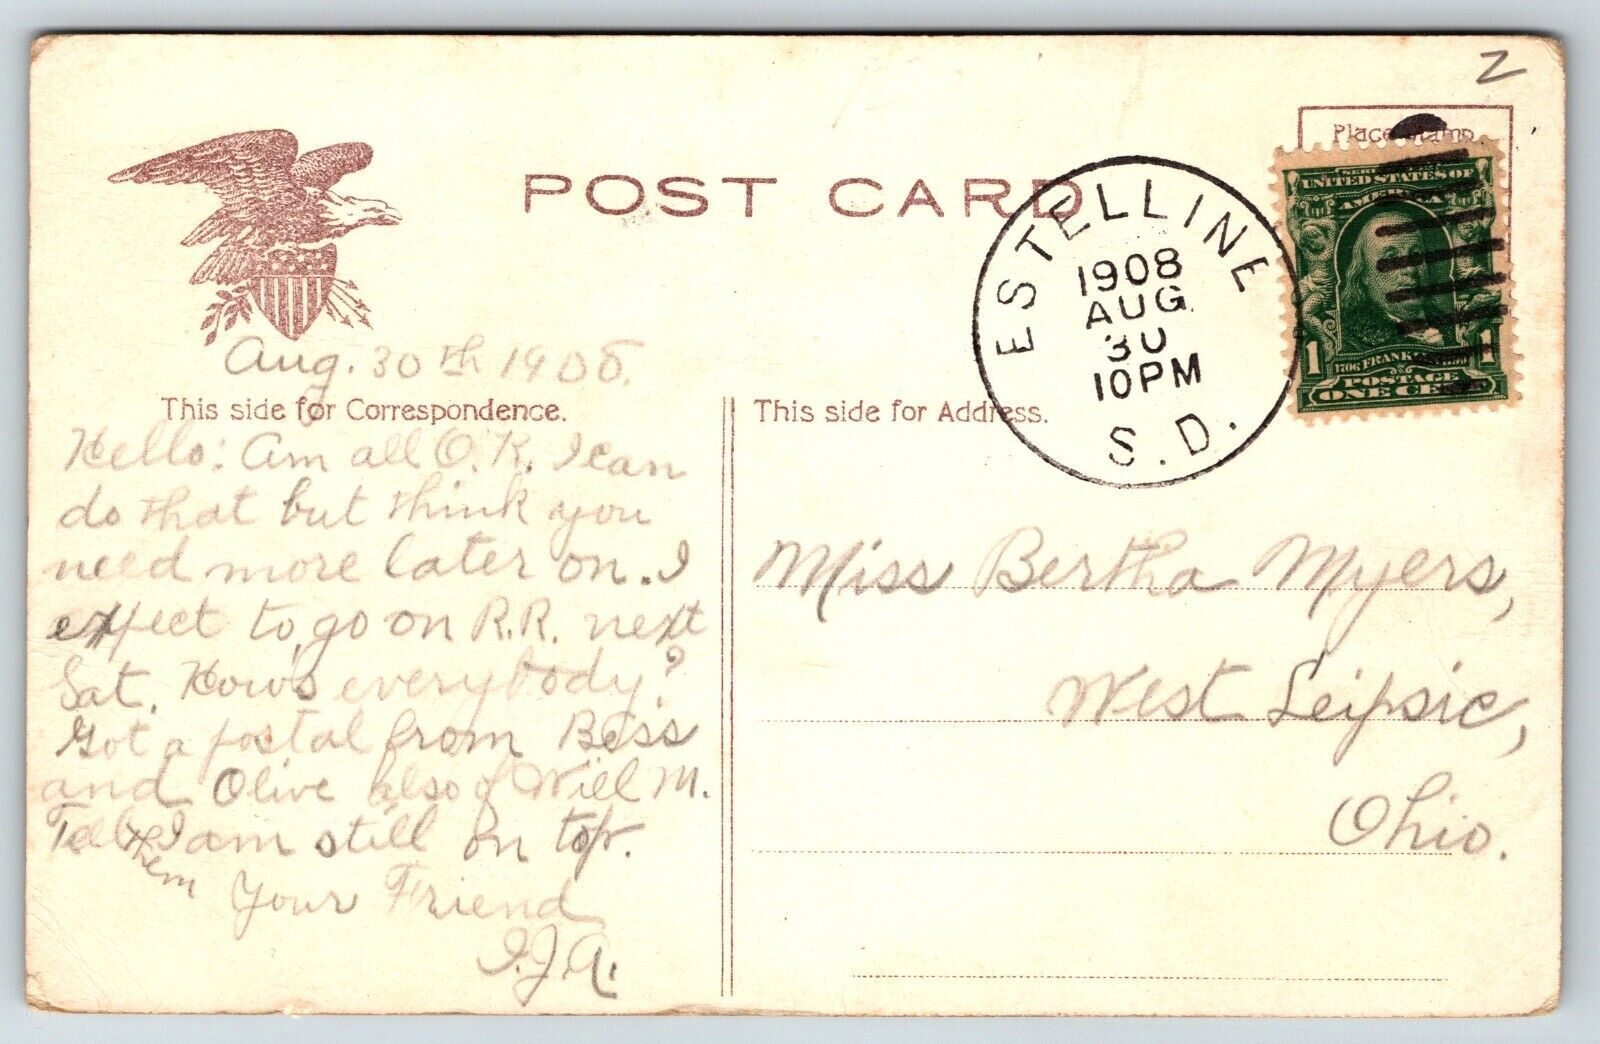 Z
Place Stamp
POST CARD
ESTELLINE
1908
AUG
30
10PM
S.D.
SERIES
UNITED STATES OF
AMERICA
1706 FRANKLIN
1 1
POSTAGE
ONE CENT
Aug. 30th 1908.
This side for Correspondence.
This side for Address.
Hello: Am all O.K. I can
do that but think you
need more later on. I
expect to go on R.R. next
Sat. How's everybody?
Got a postal from Bess
and Olive also of Will M.
Tell them I am still on top.
Your Friend
I.J.A.
Miss Bertha Myers,
West Leipsic,
Ohio.